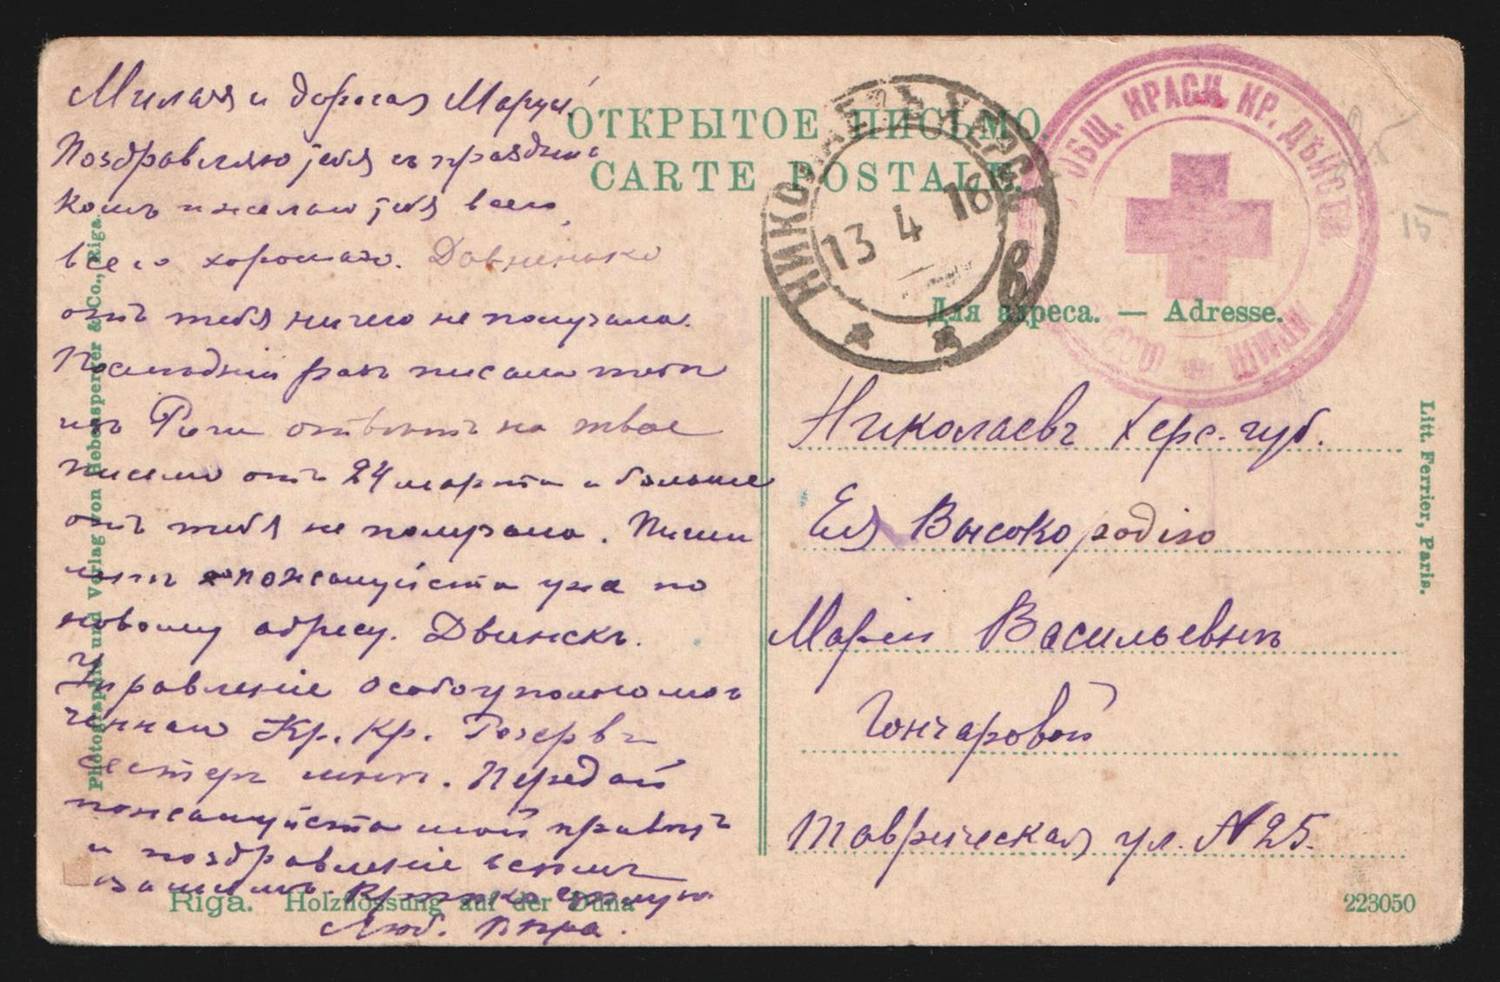 ОТКРЫТОЕ ПИСЬМО.
CARTE POSTALE.
Для адреса. — Adresse.
НИКОЛАЕВЪ ХЕРС.
13 4 16
в
ОБЩ. КРАСН. КР. ДѢЙСТВ
АРМІИ
Милая и дорогая Маруся!
Поздравляю тебя съ праздни-
комъ и желаю тебя всего,
всего хорошаго. Давненько
отъ тебя ничего не получала.
Послѣдній разъ писала тебѣ
изъ Риги отвѣтъ на твое
письмо отъ 24 марта и больше
отъ тебя не получала. Пиши
мнѣ пожалуйста уже по
новому адресу. Двинскъ.
Управленіе Особоуполномо-
ченнаго Кр. Кр. Резервъ
сестеръ мнѣ. Передай
пожалуйста мой привѣтъ
и поздравленіе всѣмъ
вашимъ. Крѣпко цѣлую
Люб. Вѣра.
Николаевъ Херс. губ.
Ея Высокородію
Маріи Васильевнѣ
Гончаровой
Таврическая ул. № 25.
15
Photographie und Verlag von Hebensperger & Co., Riga.
Litt. Ferrier, Paris.
Riga. Holzflössung auf der Düna
223050